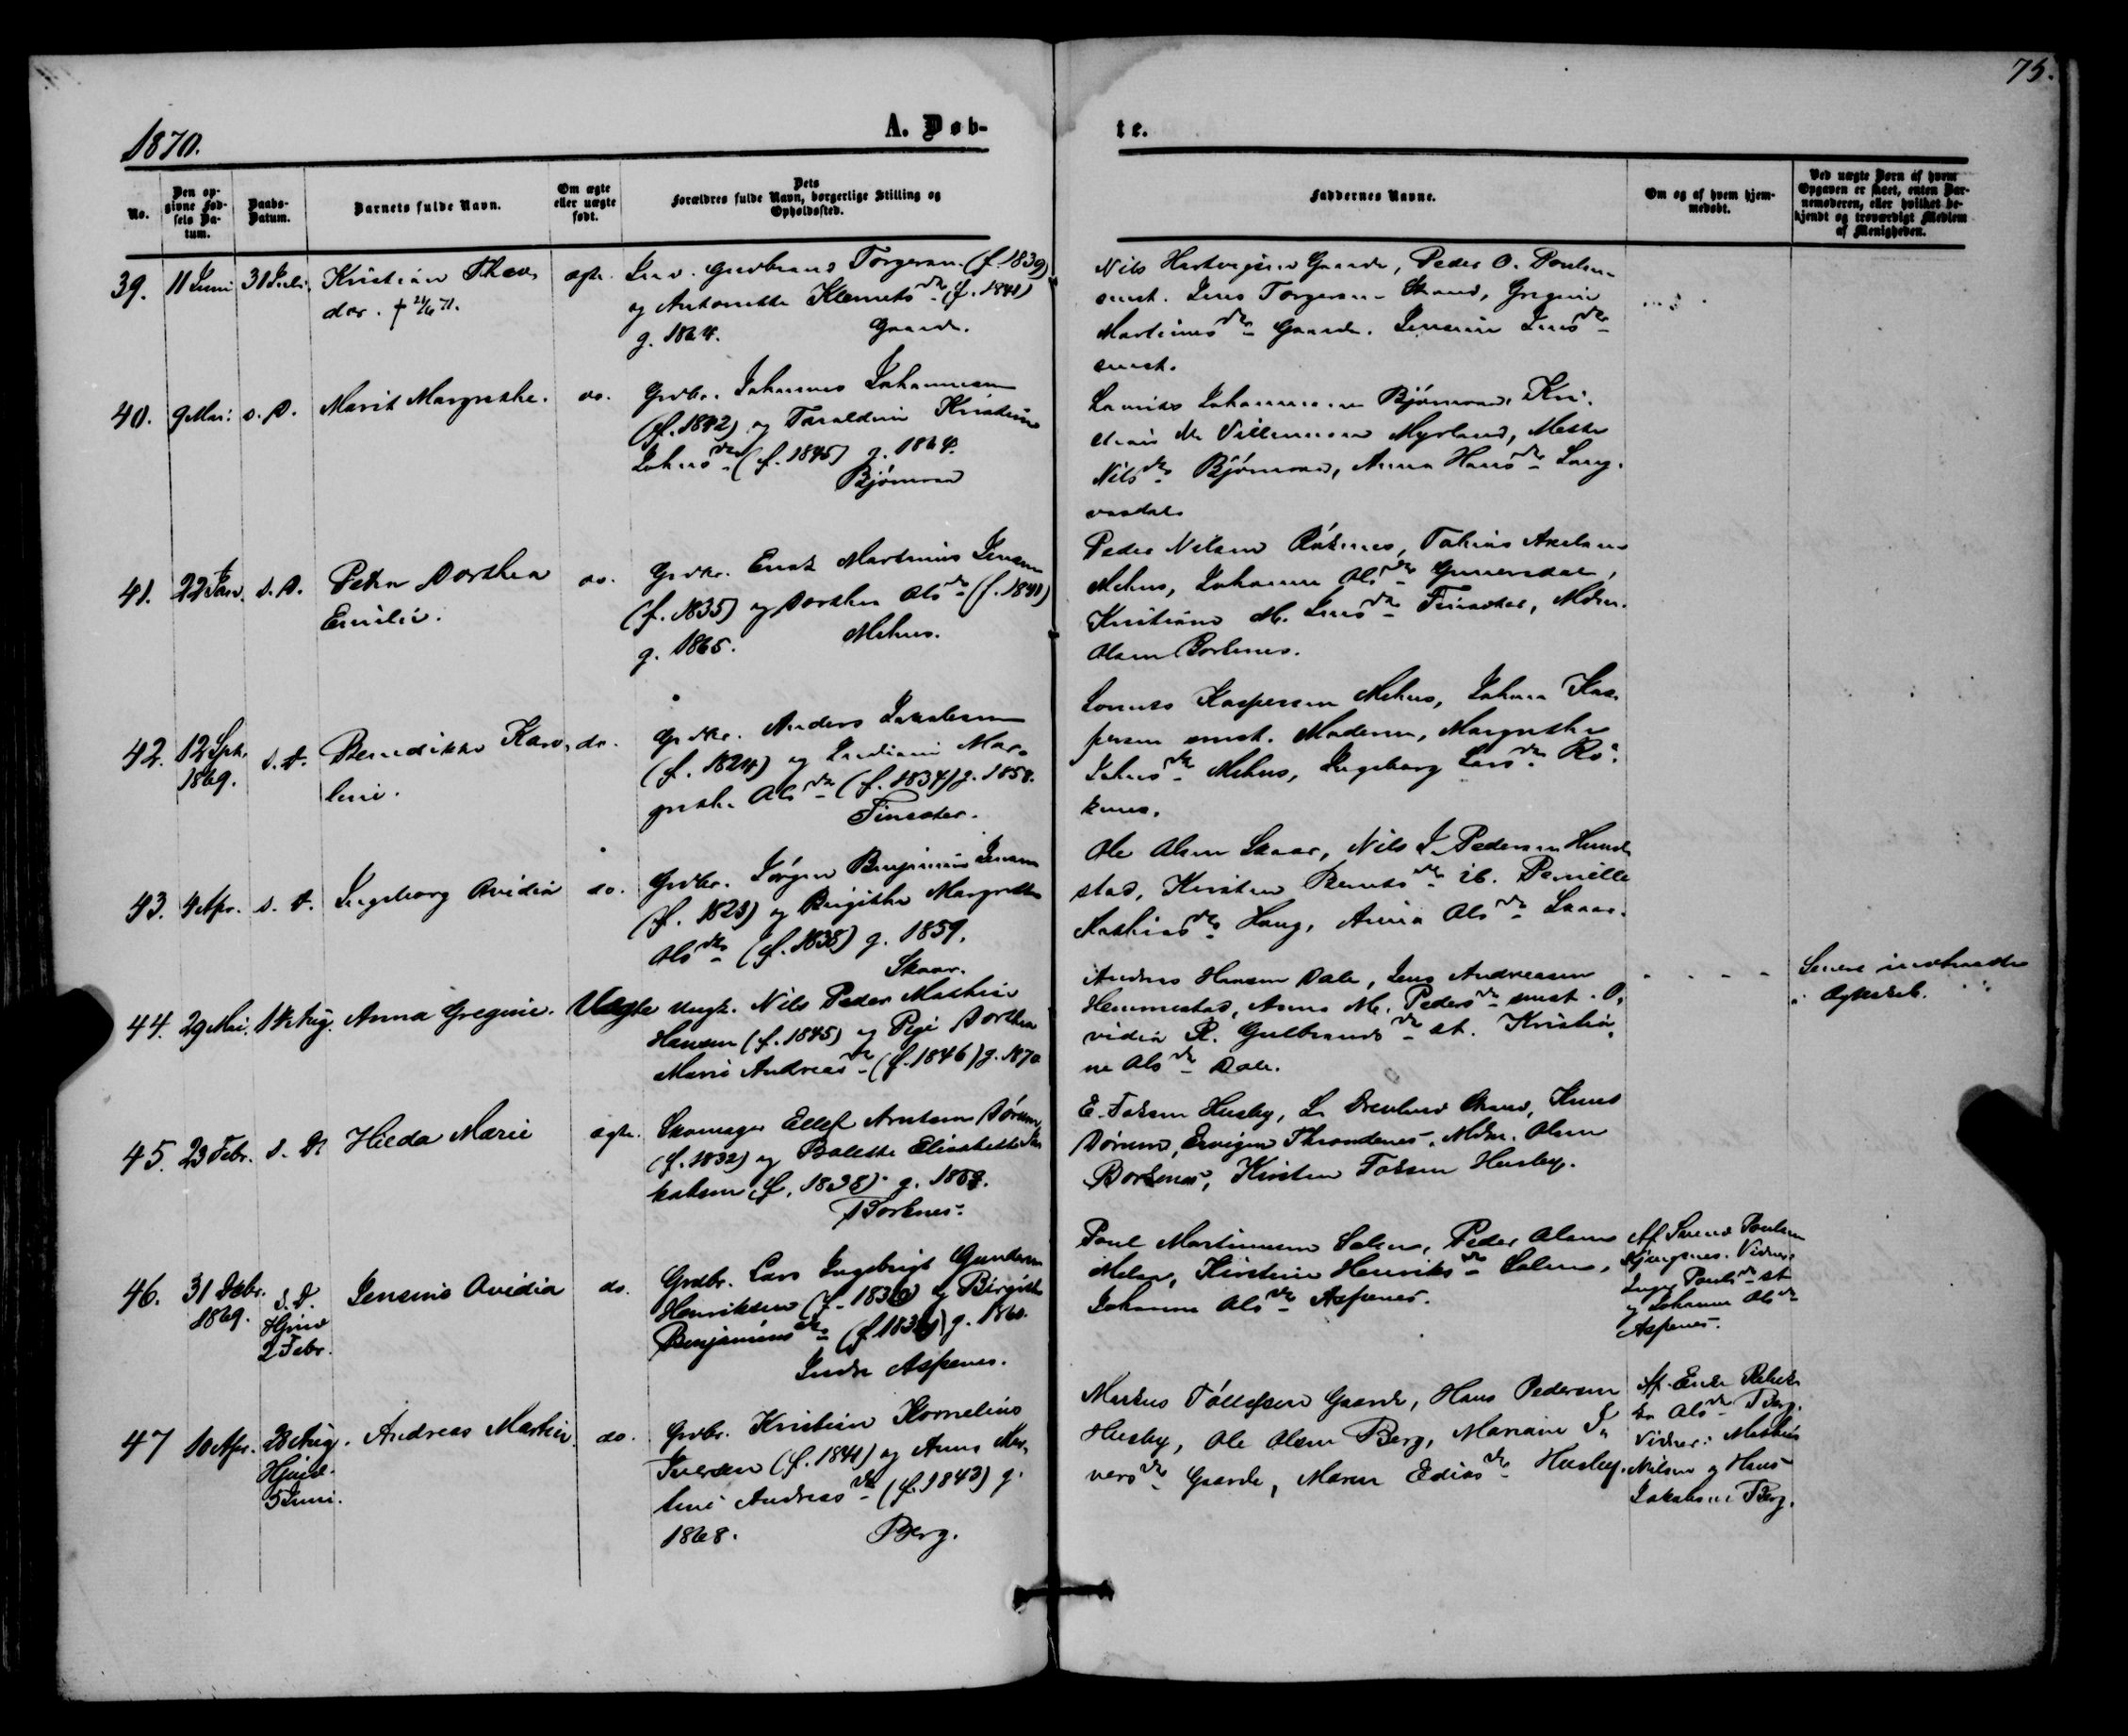 75.
1870.
A. Døb-
te.
No.
Den op-
givne Fød-
sels Da-
tum.
Daabs-
Datum.
Barnets fulde Navn.
Om ægte
eller uægte
født.
Dets
Forældres fulde Navn, borgerlige Stilling og
Opholdssted.
Faddernes Navne.
Om og af hvem hjem-
medøbt.
Ved uægte Børn af hvem
Opgaven er skeet, enten Bar-
nemoderen, eller hvilket be-
kjendt og troværdigt Medlem
af Menigheden.
39. 11 Juni 31 Juli. Kristian Theo-
dor. † 71.
ægte. Gudbrand Torgersen (f. 1839)
og Antonette Klemets dtr (f. 1841)
g. 1864. Gaarde.
Nils Hartvigsen Gaarde, Peder O. Poulsen
Jens Torgersen Strand, Gregine
Martines dtr Gaarde. Jensine Jens dtr
40. 9 Mai s. D. Marit Margrethe. do.
Grdbr. Johannes Johannesen
(f. 1842) og Taraldine Kristine
Johns dtr (f. 1845) g. 1864.
Johannesen Bjørnraa, Kri-
stian M. Villumsen Myrland, Mette
Nils dtr Bjørnraa, Anna Hans dtr Lang-
vasdal
41. 22 Jan. s. D. Petra Dorthea
Emilie.
do. Grdbr. Enok Martinus Jensen
(f. 1835) og Dorthea Ols dtr (f. 1841)
g. 1865. Mehus.
Peder Nilsen Røknes, Tobias Axelsen
Mehus, Johanna Ols dtr
Kristiane M. Jens dtr Finsæter,
Olsen Borkenes.
42. 12 Spt.
1869.
s. D. Benedikte Karo-
line.
do. Grdbr. Anders Jakobsen
(f. 1824) og Mar-
grethe Ols dtr (f. 1834) g. 1858.
Finsæter.
Kaspersen Mehus, Johan Kas-
persen Moderen, Margrethe
Johns dtr Mehus, Ingeborg Lars dtr Rø-
kenes.
43. 4 Apr. s. D. Ingeborg Ovidia do.
Grdbr. Jørgen Benjamin Jensen
(f. 1828) og Birgitte Margrethe
Ols dtr (f. 1838) g. 1859.
Skaar.
Ole Olsen Skaar, Nils J. Pedersen Hemmestad,
Kirsten Bernts dtr ib. Pernille
Mathias dtr Haug, Anna Ols dtr Skaar.
44. 29 Mai. 14 Aug. Anna Gregine. Uægte
Ungk. Nils Peder Mathias
Hansen (f. 1845) og Pige Dorthea
Marie Andreas dtr (f. 1846) g. 1870
Andreas Hansen Dale, Jens Andreasen
Hemmestad, Anne M. Peders dtr O-
vidia R. Gulbrands dtr st. Kristia-
ne Ols dtr Dale.
Senere indtraadte
i Ægteskab.
45. 23 Febr. s. D. Hilda Marie
ægte. Skomager Ellef Arntsen Dørum
(f. 1832) og Bolette Elisabeth
(f. 1838) g. 1868.
Borkenes.
E. Foksen Husby, Knud
Dørum, Throndenes, Olsen
Borkenes, Kirsten Foksen Husby.
46. 31 Debr.
1869.
s. D.
Hjmd
2 Febr.
Jensine Ovidia do.
Grdbr. Lars Ingebrigt Gunders
Henriksen (f. 1836) og Birgitte
Benjamins dtr (f. 1836) g. 1860.
Indre Aspenes.
Poul Martinusen Salen, Peder Olsen
Melaa, Kirstine Henriks dtr Salen,
Johanna Ols dtr Aspenes.
Af Svend Poulsen
Kjengsnes. Vidner:
Inger Pauls dtr st
og Johanna Ols dtr
Aspenes.
47 10 Apr. 28 Aug.
Hjmd.
5 Juni.
Andreas Martin. do.
Grdbr. Kristian Kornelius
Iversen (f. 1841) og Anne Mar-
tine Andreas dtr (f. 1843) g.
1868. Berg.
Markus Tollefsen Gaarde, Hans Pedersen
Husby, Ole Olsen Berg, Mariane I-
vers dtr Gaarde, Maren Edias dtr Husby.
Af Enke Rebek-
ka Ols dtr Berg.
Vidner: Mathias
Nilsen og Hans
Jakobsen Berg.